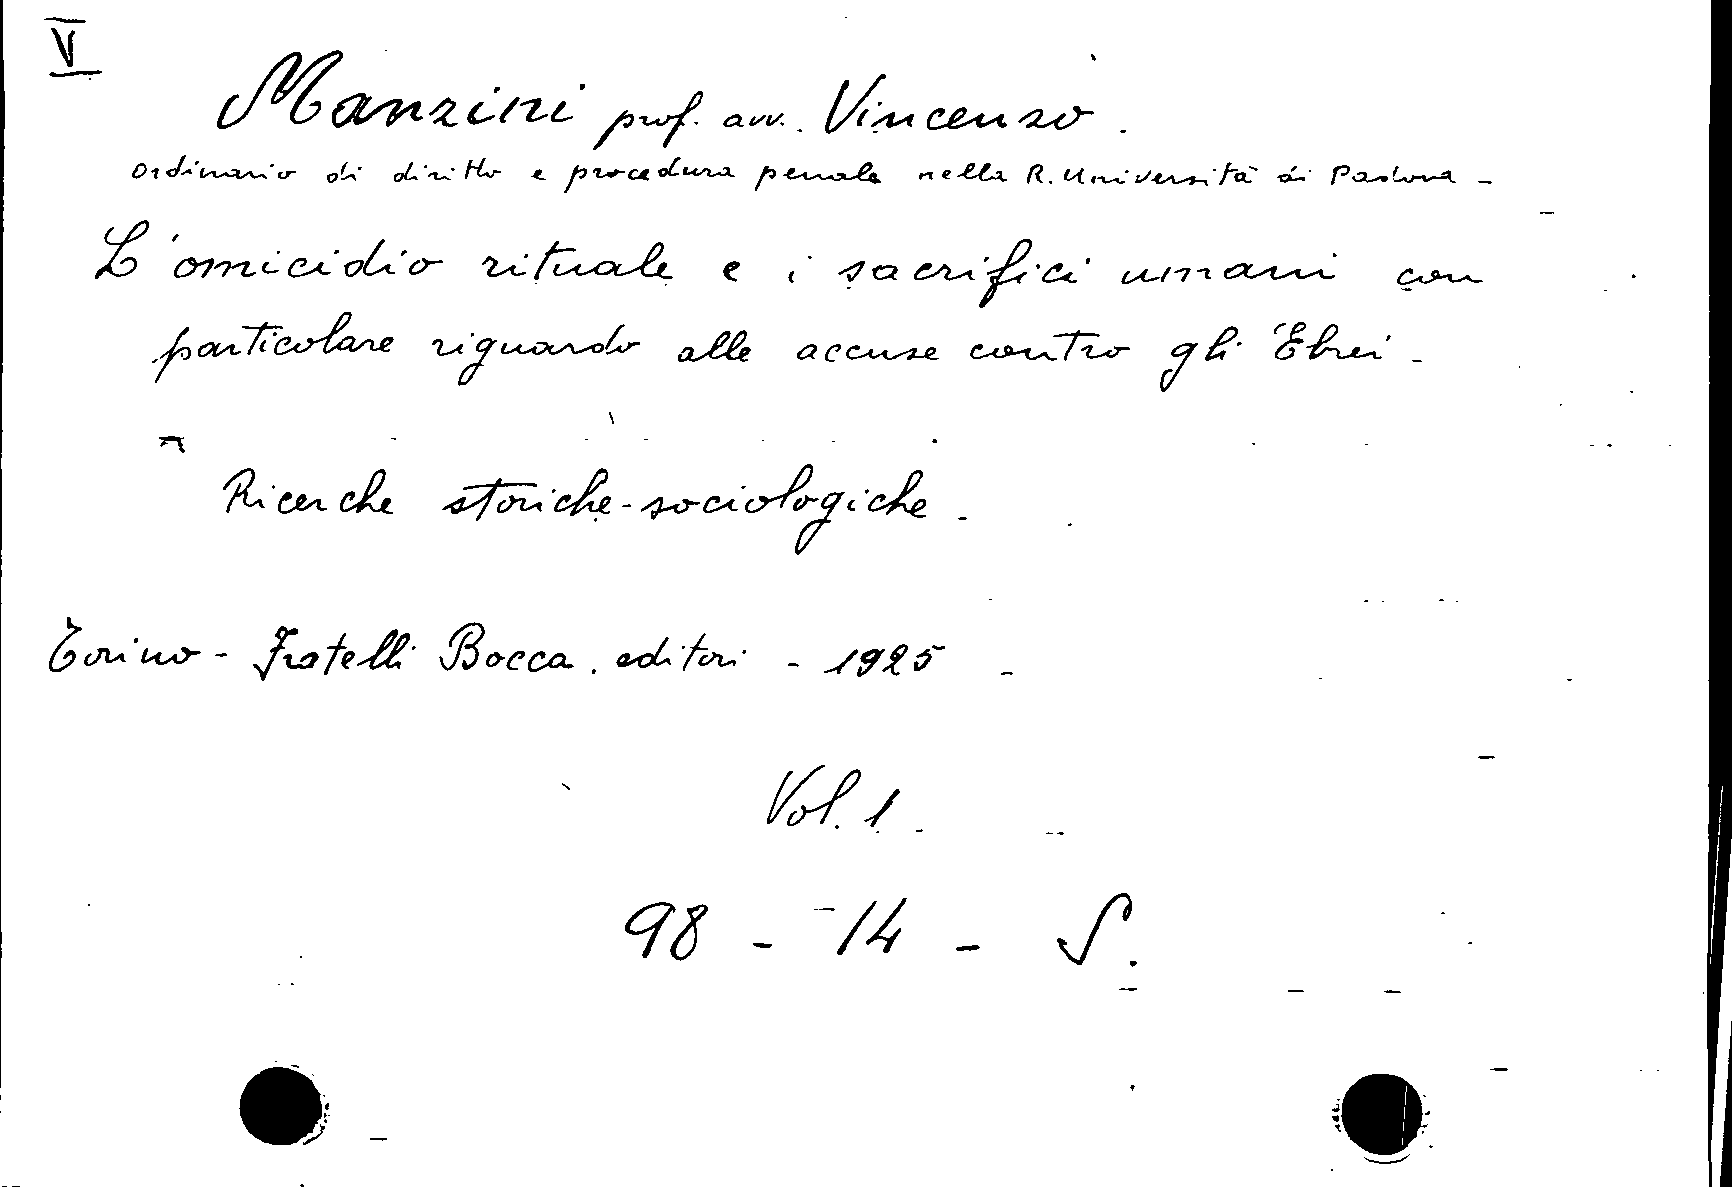 V
Manzini prof. avv. Vincenzo.
ordinario di diritto e procedura penale nella R. Università di Padova -
L'omicidio rituale e i sacrifici umani con
particolare riguardo alle accuse contro gli Ebrei -
Ricerche storiche-sociologiche -
Torino - Fratelli Bocca. editori - 1925 -
Vol. 1.
98 - 14 - S.